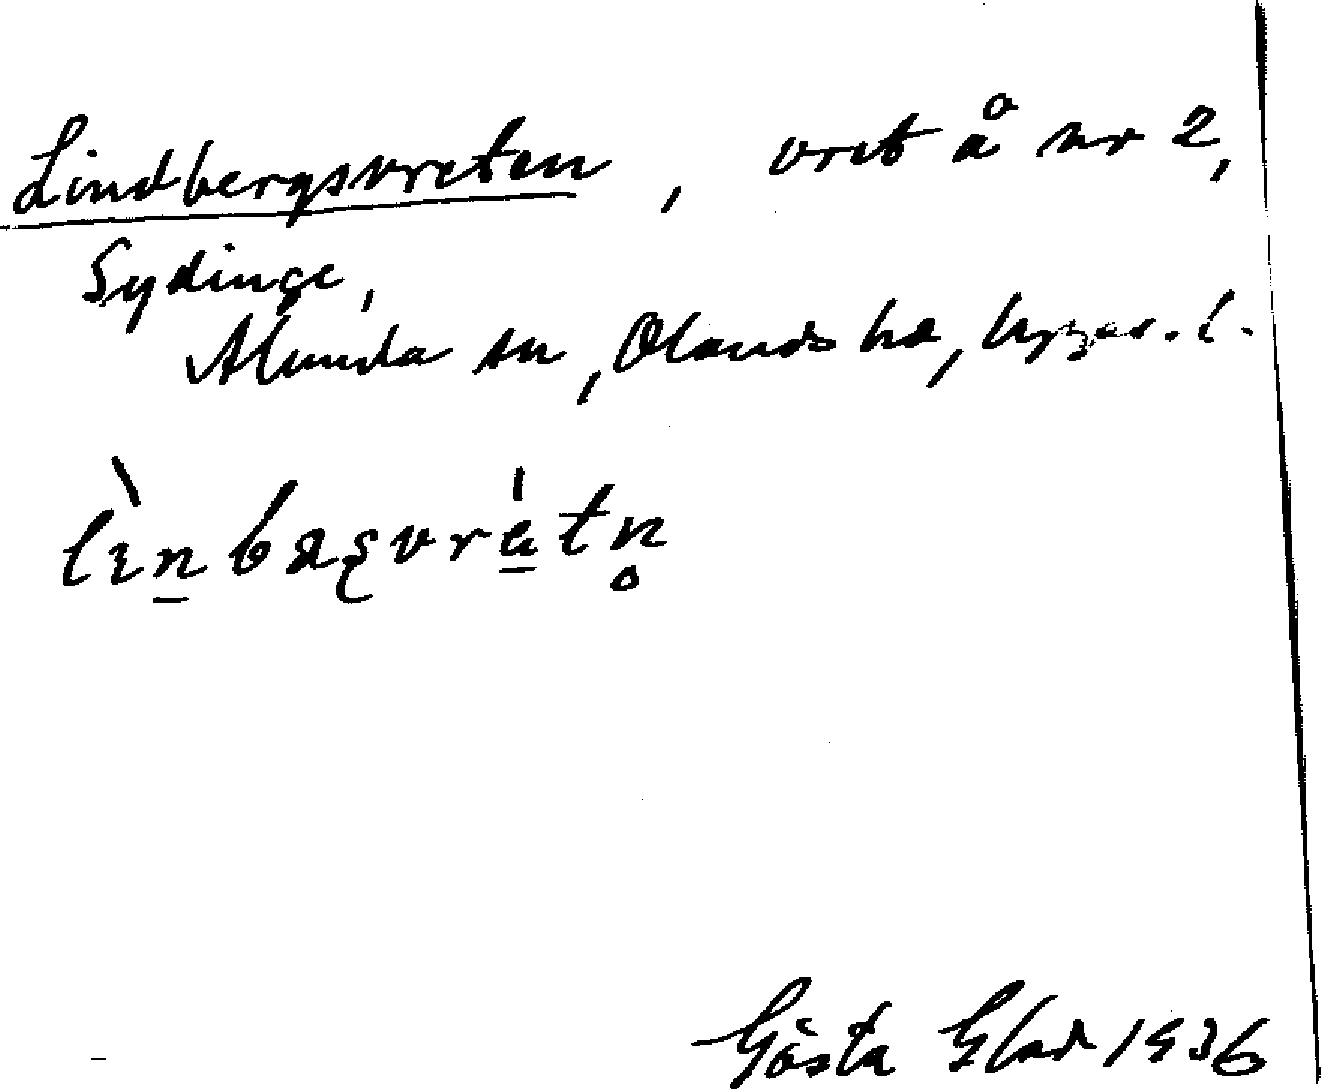 Lindbergsvreten, vret å nr 2,
Sydinge,
Alunda sn, Olands hd, Uppsa. l.
lìn̠bæşvré̠tn̥
Gösta Glad 1936